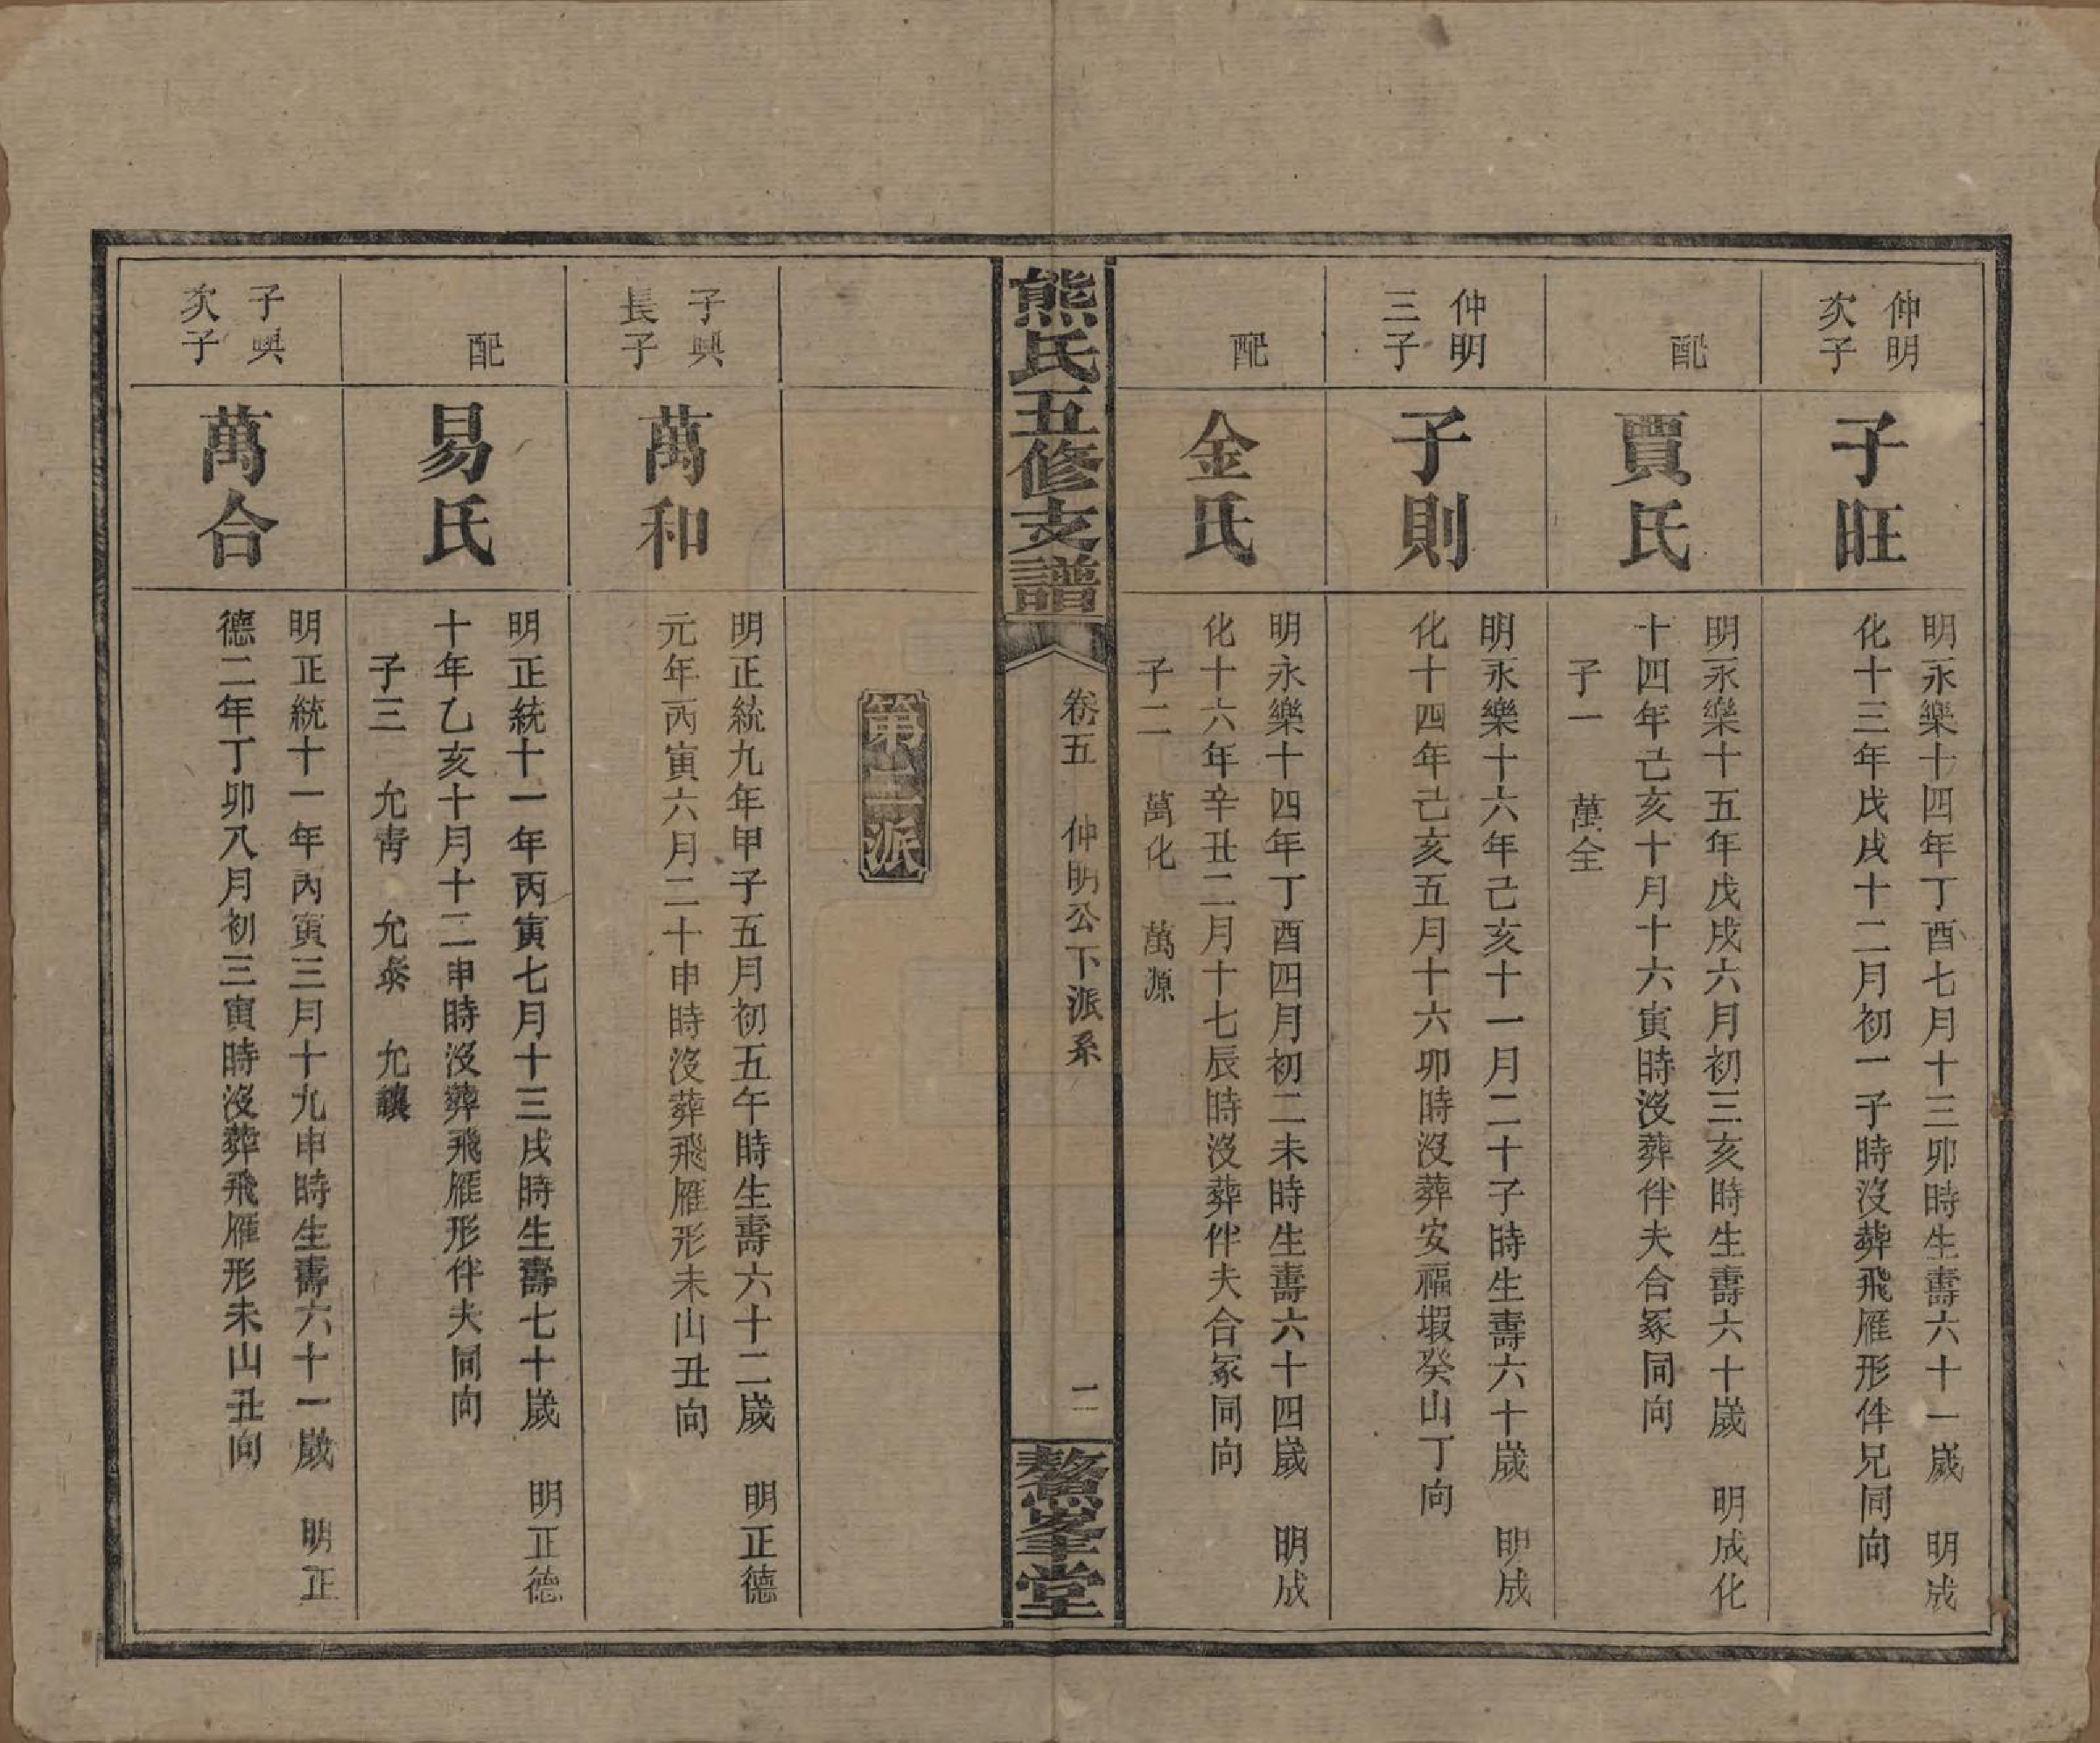 仲明
次子
子旺
明永樂十四年丁酉七月十三卯時生壽六十一歲　明成
化十三年戊戌十二月初一子時沒葬飛雁形伴兄同向
配
賈氏
明永樂十五年戊戌六月初三亥時生壽六十歲　明成化
十四年己亥十月十六寅時沒葬伴夫合冢同向
子一　萬全
仲明
三子
子則
明永樂十六年己亥十一月二十子時生壽六十歲　明成
化十四年己亥五月十六卯時沒葬安福塅癸山丁向
配
金氏
明永樂十四年丁酉四月初二未時生壽六十四歲　明成
化十六年辛丑二月十七辰時沒葬伴夫合冢同向
子二　萬化　萬源
熊氏五修支譜
卷五　仲明公下派系
二
鰲峯堂
第二派
子興
長子
萬和
明正統九年甲子五月初五午時生壽六十二歲　明正德
元年丙寅六月二十申時沒葬飛雁形未山丑向
配
易氏
明正統十一年丙寅七月十三戌時生壽七十歲　明正德
十年乙亥十月十二申時沒葬飛雁形伴夫同向
子三　允青　允泰　允讓
子興
次子
萬合
明正統十一年丙寅三月十九申時生壽六十一歲　明正
德二年丁卯八月初三寅時沒葬飛雁形未山丑向